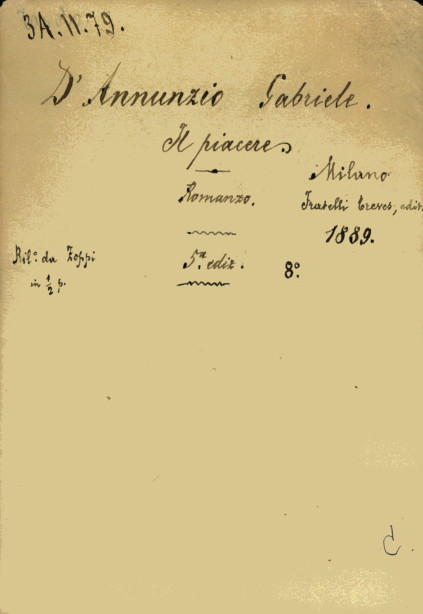 3A.11.79.
D'Annunzio Gabriele.
Il piacere
Milano
Romanzo.
Fratelli Treves, edit.
1889.
Ril.° da Zoppi
5.ª ediz.
8.°
in 1/2 p.
C.